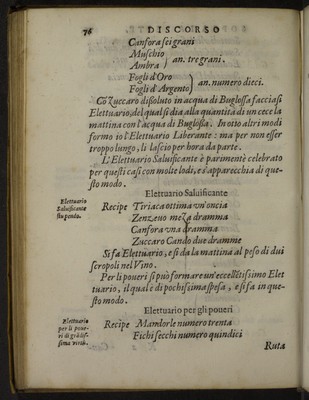 76 DISCORSO
Canfora sei grani
Muschio
Ambra } an. tre grani.
Fogli d'Oro
Fogli d'Argento } an. numero dieci.
Cō Zuccaro dissoluto in acqua di Buglossa facciasi
Elettuario, del qual si dia alla quantità di un cece la
mattina con l'acqua di Buglossa. In otto altri modi
formo io l'Elettuario Liberante: ma per non esser
troppo lungo, li lascio per hora da parte.
L'Elettuario Saluificante è parimēte celebrato
per questi casi con molte lodi, e s'apparecchia di que-
sto modo.
Elettuario
Saluificante
stupendo.
Elettuario Saluificante
Recipe Tiriaca ottima vn'oncia
Zenzeuo meza dramma
Canfora vna dramma
Zuccaro Cando due dramme
Si fa Elettuario, e si da la mattina al peso di dui
scropoli nel Vino.
Per li poueri si può formare un'eccellētissimo Elet
tuario, il qual è di pochissima spesa, e si fa in que-
sto modo.
Elettuario
per li poue-
ri di grādis-
sima virtù.
Elettuario per gli poueri
Recipe Mandorle numero trenta
Fichi secchi numero quindici
Ruta